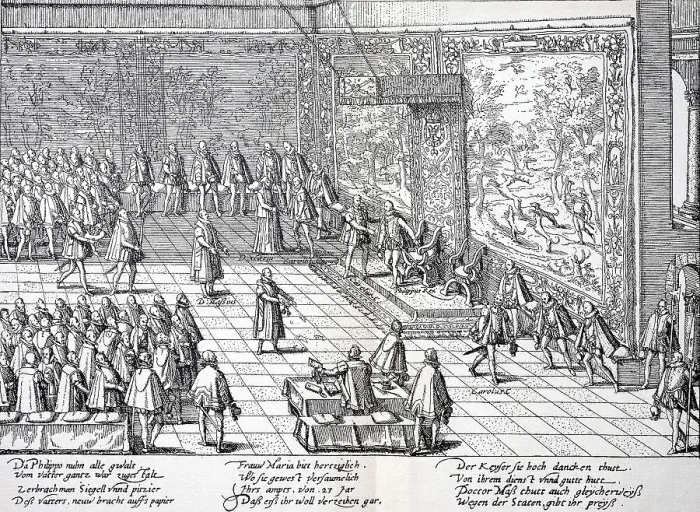 D. Maria
D. Maßius
Carolus
Da Philippo nuhn alle gwalt
Vom vatter gantz war zugestalt
Zerbrachman Siegell vnnd pitzier
Deß vatters, neuw bracht auffs papier
Frauw Maria bitt hertziglich.
Wo sie gewest versaumelich
Ihrs ampts, von 23 Jar
Daß erß ihr woll verzeihen gar.
Der Keyser sie hoch dancken thutt.
Von ihrem dienst vnnd gutte hutt.
Doctor Maß thutt auch gleycherweyß
Wegen der Staten, gibt ihr preyß.